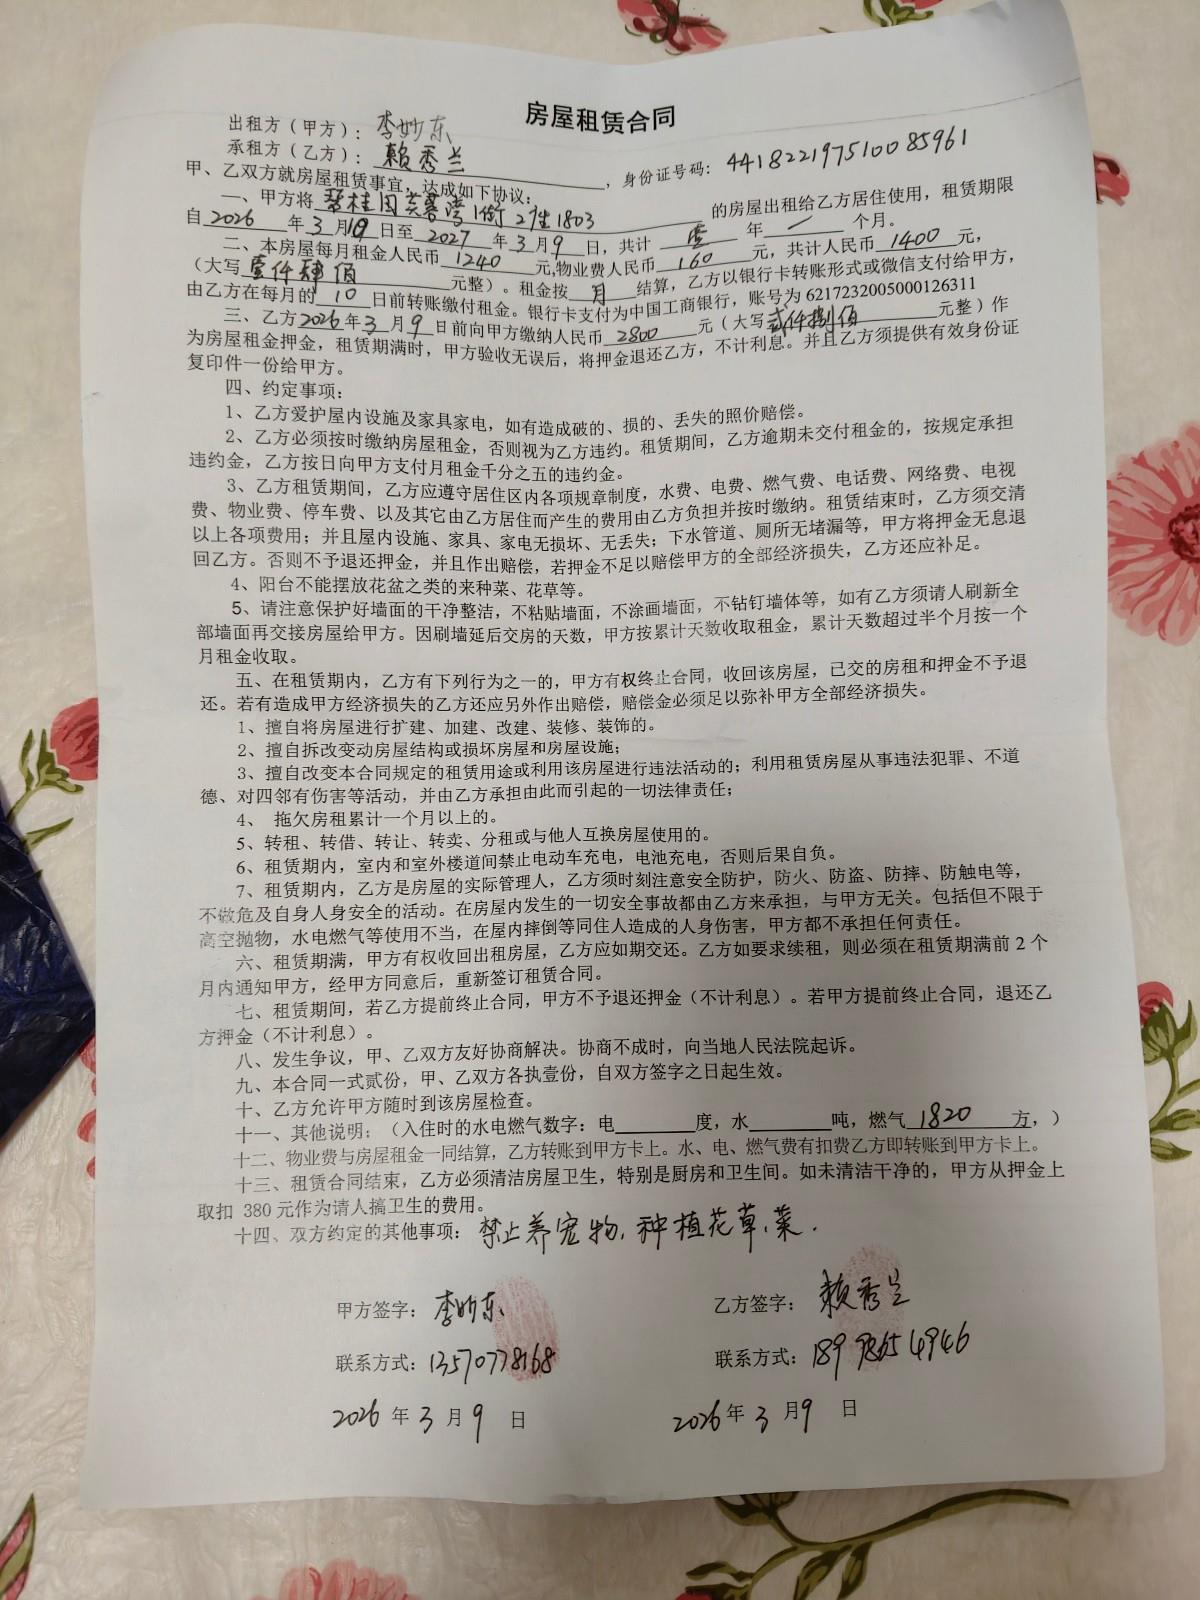 房屋租赁合同
出租方（甲方）：李妙东
承租方（乙方）：赖秀兰，身份证号码：441822197510085961
甲、乙双方就房屋租赁事宜，达成如下协议：
一、甲方将碧桂园芙蓉湾1街2座1803的房屋出租给乙方居住使用，租赁期限
自2026年3月10日至2027年3月9日，共计壹年/个月。
二、本房屋每月租金人民币1240元,物业费人民币160元，共计人民币1400元，
（大写壹仟肆佰元整）。租金按月结算，乙方以银行卡转账形式或微信支付给甲方，
由乙方在每月的10日前转账缴付租金。银行卡支付为中国工商银行，账号为6217232005000126311
三、乙方2026年3月9日前向甲方缴纳人民币2800元（大写贰仟捌佰元整）作
为房屋租金押金，租赁期满时，甲方验收无误后，将押金退还乙方，不计利息。并且乙方须提供有效身份证
复印件一份给甲方。
四、约定事项：
1、乙方爱护屋内设施及家具家电，如有造成破的、损的、丢失的照价赔偿。
2、乙方必须按时缴纳房屋租金，否则视为乙方违约。租赁期间，乙方逾期未交付租金的，按规定承担
违约金，乙方按日向甲方支付月租金千分之五的违约金。
3、乙方租赁期间，乙方应遵守居住区内各项规章制度，水费、电费、燃气费、电话费、网络费、电视
费、物业费、停车费、以及其它由乙方居住而产生的费用由乙方负担并按时缴纳。租赁结束时，乙方须交清
以上各项费用；并且屋内设施、家具、家电无损坏、无丢失；下水管道、厕所无堵漏等，甲方将押金无息退
回乙方。否则不予退还押金，并且作出赔偿，若押金不足以赔偿甲方的全部经济损失，乙方还应补足。
4、阳台不能摆放花盆之类的来种菜、花草等。
5、请注意保护好墙面的干净整洁，不粘贴墙面，不涂画墙面，不钻钉墙体等，如有乙方须请人刷新全
部墙面再交接房屋给甲方。因刷墙延后交房的天数，甲方按累计天数收取租金，累计天数超过半个月按一个
月租金收取。
五、在租赁期内，乙方有下列行为之一的，甲方有权终止合同，收回该房屋，已交的房租和押金不予退
还。若有造成甲方经济损失的乙方还应另外作出赔偿，赔偿金必须足以弥补甲方全部经济损失。
1、擅自将房屋进行扩建、加建、改建、装修、装饰的。
2、擅自拆改变动房屋结构或损坏房屋和房屋设施；
3、擅自改变本合同规定的租赁用途或利用该房屋进行违法活动的；利用租赁房屋从事违法犯罪、不道
德、对四邻有伤害等活动，并由乙方承担由此而引起的一切法律责任；
4、 拖欠房租累计一个月以上的。
5、转租、转借、转让、转卖、分租或与他人互换房屋使用的。
6、租赁期内，室内和室外楼道间禁止电动车充电，电池充电，否则后果自负。
7、租赁期内，乙方是房屋的实际管理人，乙方须时刻注意安全防护，防火、防盗、防摔、防触电等，
不做危及自身人身安全的活动。在房屋内发生的一切安全事故都由乙方来承担，与甲方无关。包括但不限于
高空抛物，水电燃气等使用不当，在屋内摔倒等同住人造成的人身伤害，甲方都不承担任何责任。
六、租赁期满，甲方有权收回出租房屋，乙方应如期交还。乙方如要求续租，则必须在租赁期满前 2 个
月内通知甲方，经甲方同意后，重新签订租赁合同。
七、租赁期间，若乙方提前终止合同，甲方不予退还押金（不计利息）。若甲方提前终止合同，退还乙
方押金（不计利息）。
八、发生争议，甲、乙双方友好协商解决。协商不成时，向当地人民法院起诉。
九、本合同一式贰份，甲、乙双方各执壹份，自双方签字之日起生效。
十、乙方允许甲方随时到该房屋检查。
十一、其他说明：（入住时的水电燃气数字：电______度，水______吨，燃气1820方，）
十二、物业费与房屋租金一同结算，乙方转账到甲方卡上。水、电、燃气费有扣费乙方即转账到甲方卡上。
十三、租赁合同结束，乙方必须清洁房屋卫生，特别是厨房和卫生间。如未清洁干净的，甲方从押金上
取扣 380 元作为请人搞卫生的费用。
十四、双方约定的其他事项：禁止养宠物、种植花草、菜.
甲方签字：李妙东 乙方签字：赖秀兰
联系方式：13570778168 联系方式：18998654946
2026年3月9日 2026年3月9日